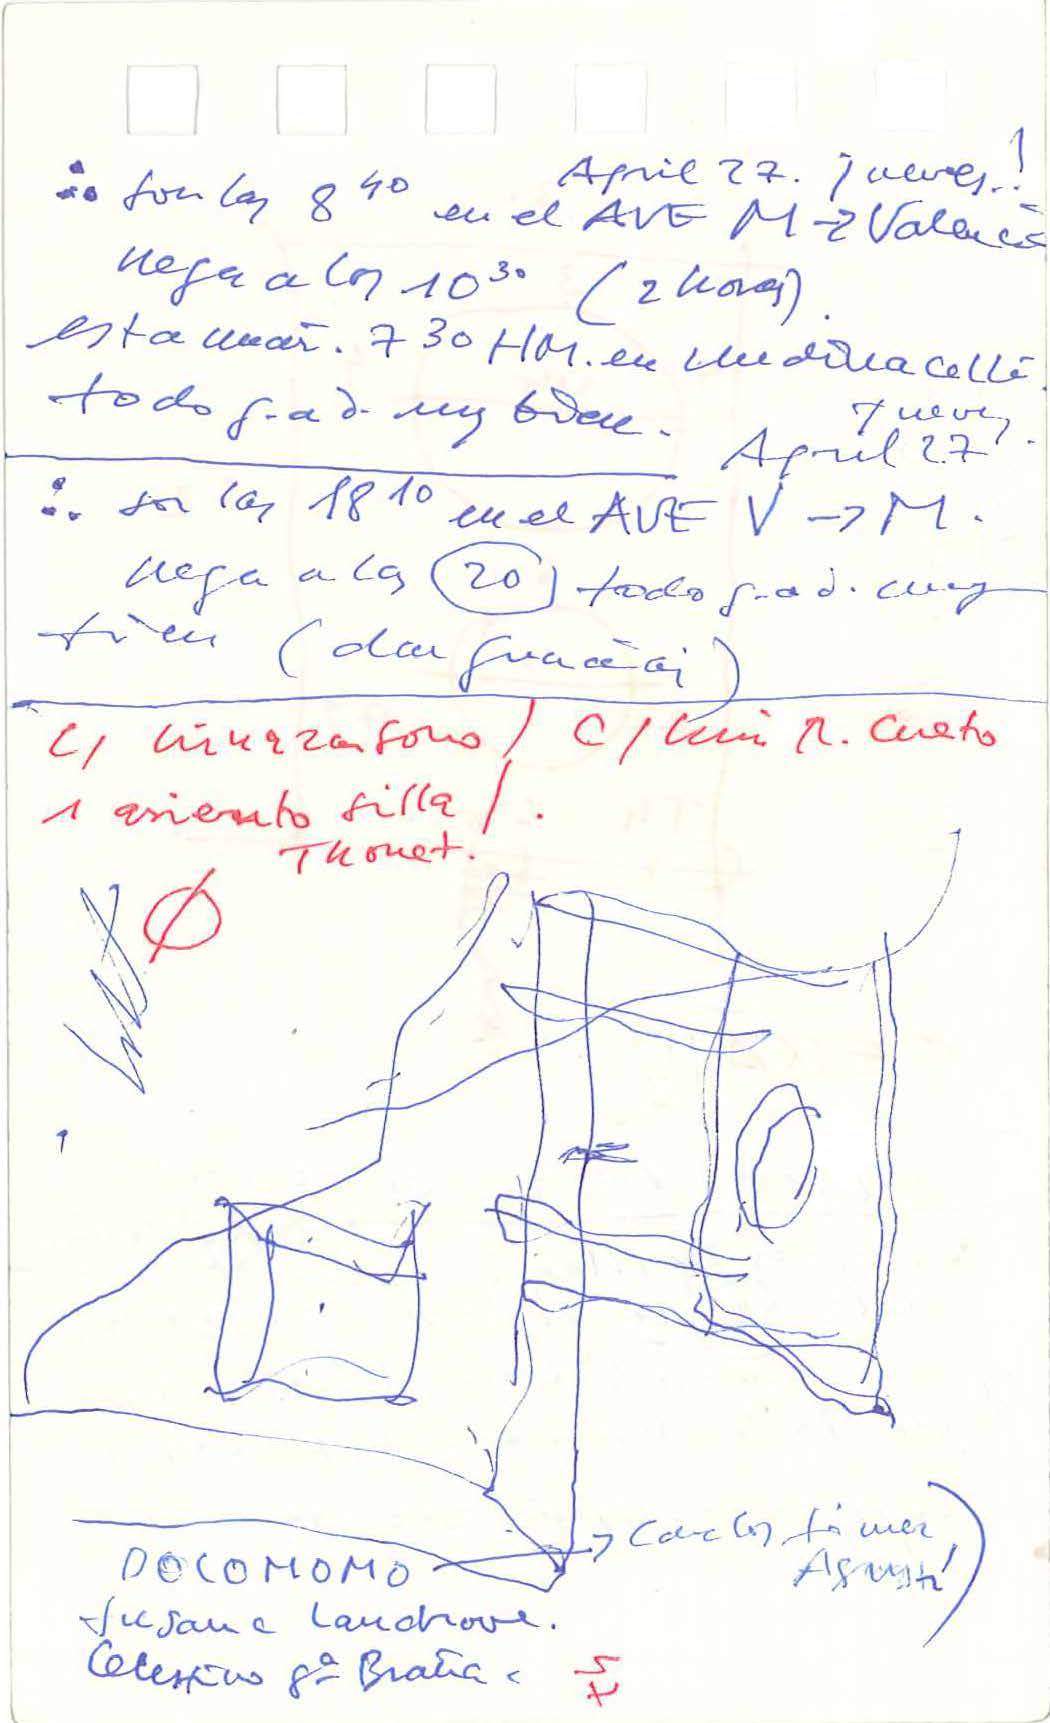 ∴ son las 8 40 April 27. jueves.!
en el AVE M → Valencia
llega a las 10 30 (2 horas).
esta mañ. 7 30 HM. en Medinacelli.
todo g.a.d. muy bien. jueves.
April 27
∴ son las 18 10 en el AVE V → M.
llega a las 20 todo g.a.d. muy
bien (dar gracias)
C/ / C/ Luis R. Cueto
1 asiento silla /.
Thonet.
Ø
DOCOMOMO → Carlos
Agustí)
Susana Landrove.
Celestino gª Braña.